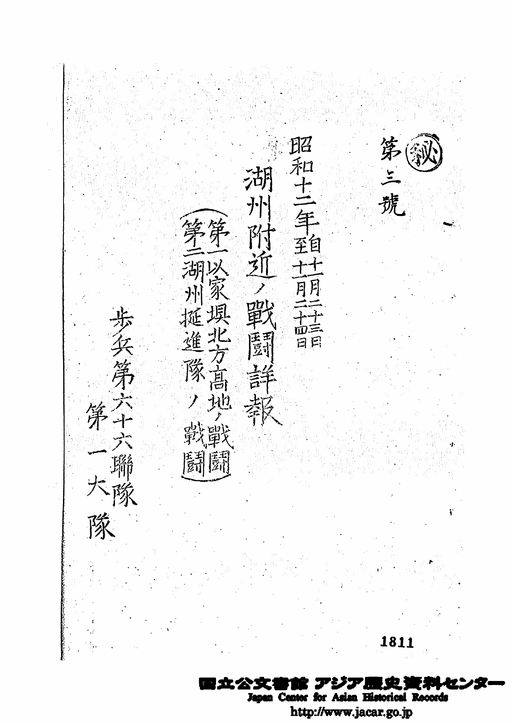 秘
第三號
昭和十二年自十一月二十三日至十一月二十四日
湖州附近ノ戰鬪詳報
(第一以家埧北方高地ノ戰鬪
第二湖州挺進隊ノ戰鬪)
歩兵第六十六聯隊
第一大隊
1811
国立公文書館 アジア歴史資料センター
Japan Center for Asian Historical Records
http://www.jacar.go.jp